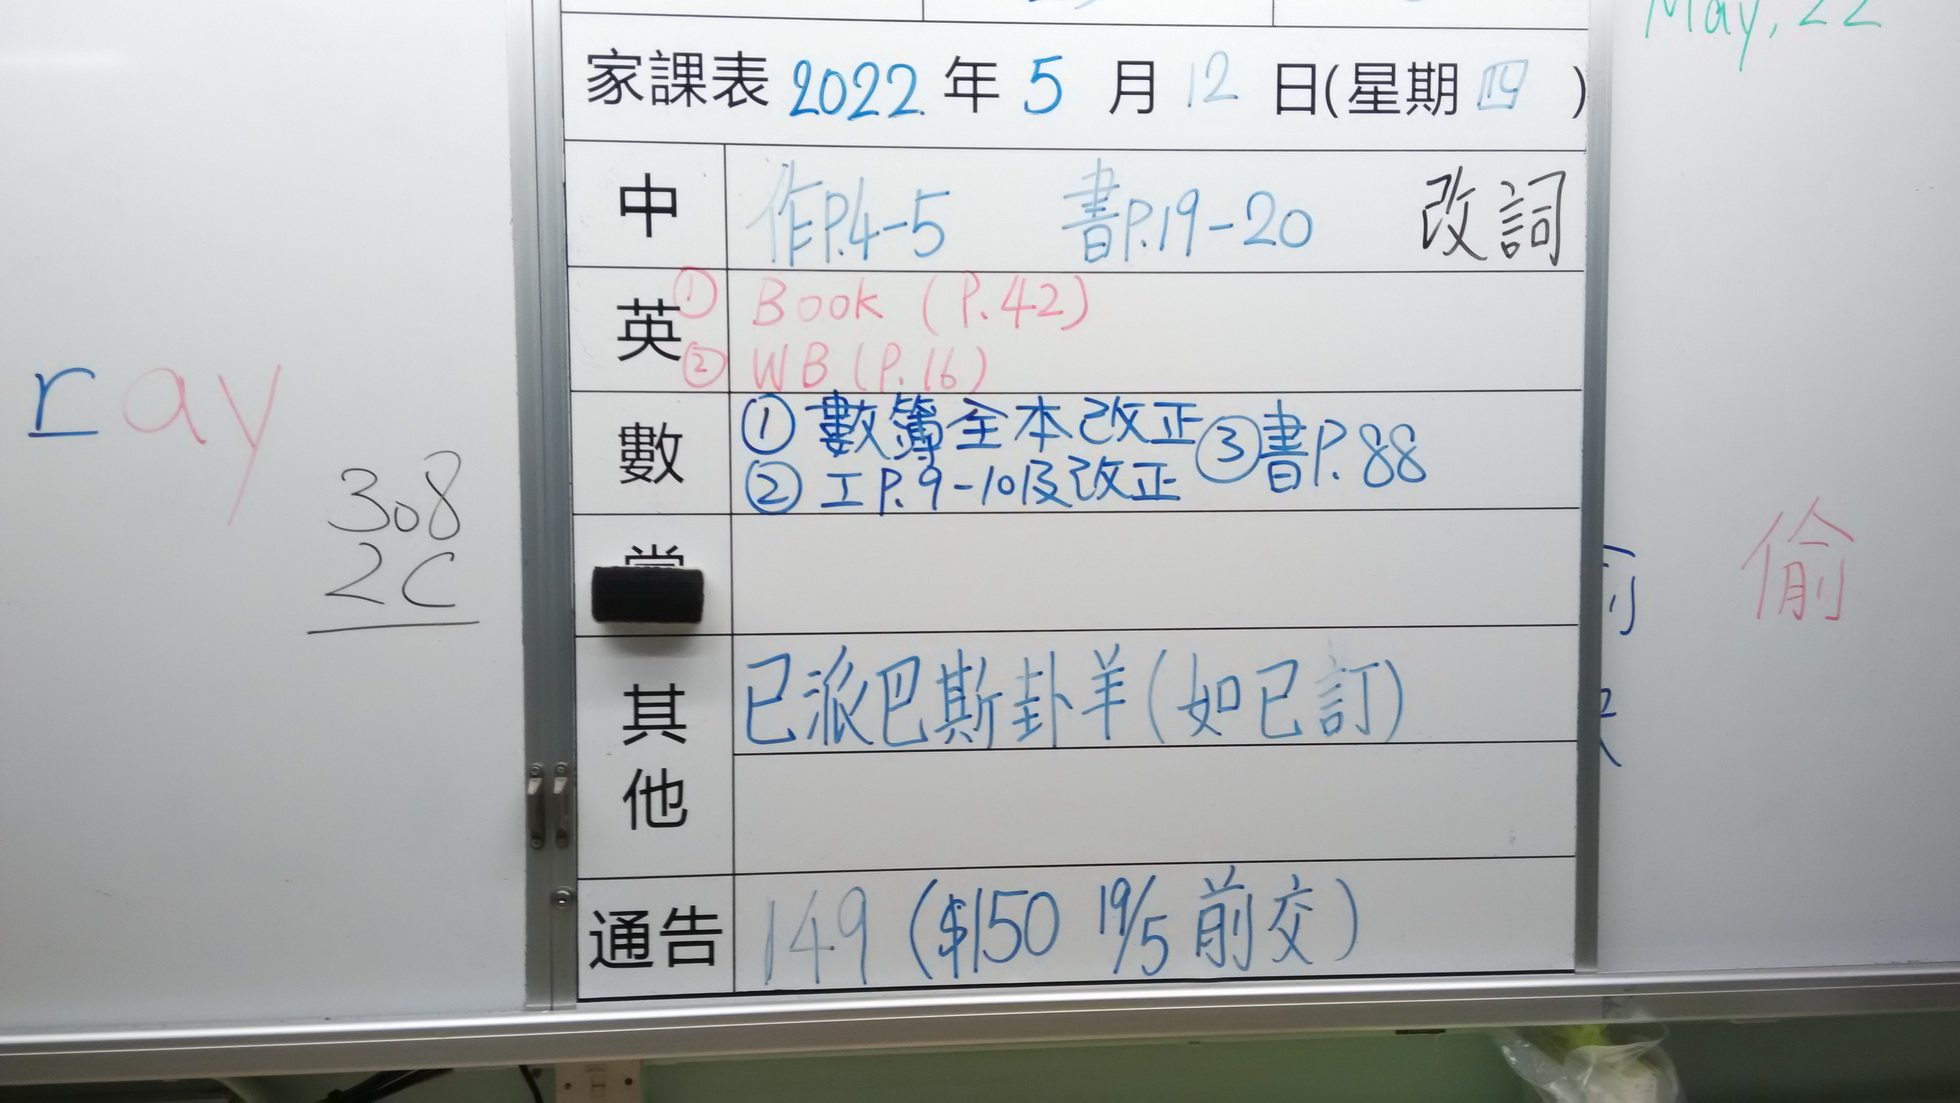 May, 22
家課表 2022 年 5 月 12 日(星期 四 )
中 作P.4-5 書P.19-20 改詞
英 ① Book (P.42)
② WB (P.16)
數 ① 數簿全本改正 ③ 書P.88
② 工P.9-10及改正
其他 已派巴斯卦羊(如已訂)
通告 149 ($150 19/5 前交)
ray
308
2C
偷